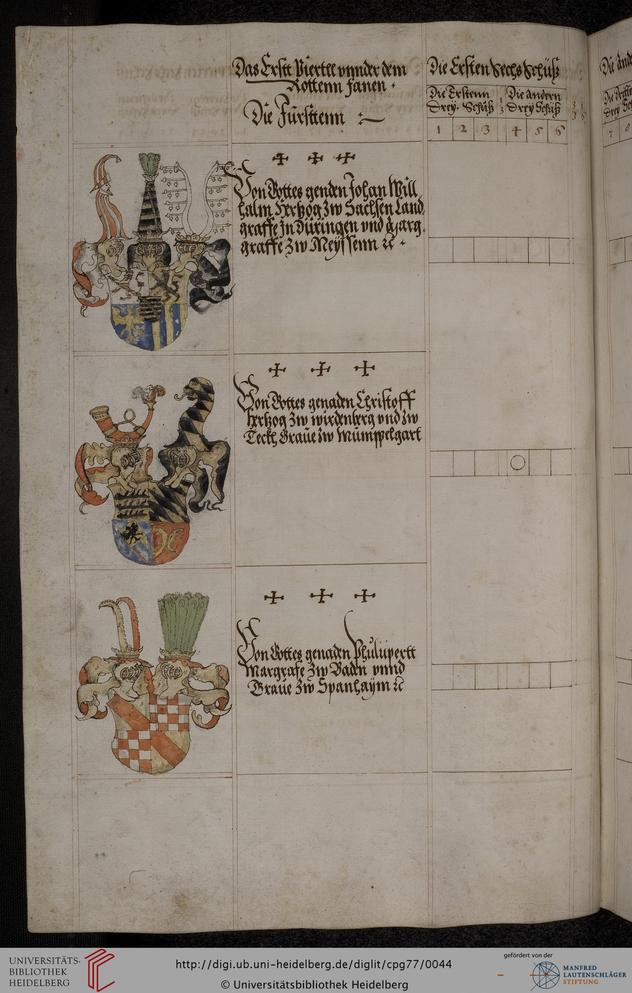 Das Erstt Viertel vnnder dem
Rottenn fanen ·
Die Fürsttenn
Die Ersten Sechs Schuß
Die Erstenn
Drey · Schuß
Die andern
Drey Schuß
1 2 3 4 5 6
Von Gottes genden Johan Will
halm Hertzog Zw Sachsen Land
graffe In Düringen vnd Marg
graffe Zw Meyssenn ꝛc ·
Von Gottes genaden Christoff
Hertzog Zw wirdenberg vnd Zw
Teckh Graue Zw Mümppelgart
Von Gottes genaden Philipertt
Margrafe Zw Baden vnnd
Graue Zw Spanhaym ꝛc
Die
7
UNIVERSITÄTS-
BIBLIOTHEK
HEIDELBERG
http://digi.ub.uni-heidelberg.de/diglit/cpg77/0044
© Universitätsbibliothek Heidelberg
gefördert von der
MANFRED
LAUTENSCHLÄGER
STIFTUNG